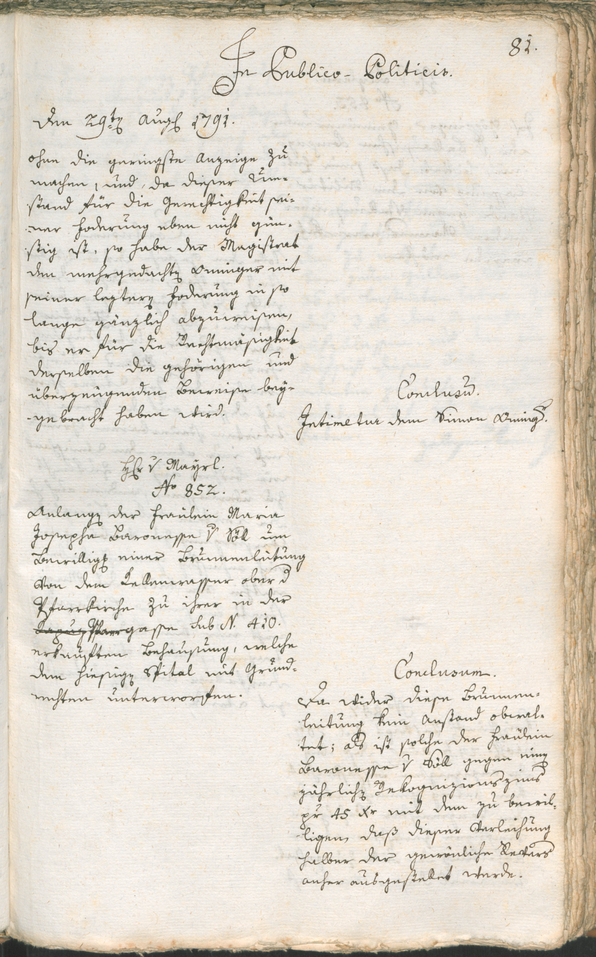 81.
In Publico-Politicis.
Den 29ty Augst 1791.
ohne die geringste Anzeige zu
machen, und, da dieser Um-
stand für die Gerechtigkeit sei-
ner Foderung eben nicht gün-
stig ist, so habe der Magistrat
den mehrgedachten Aninger mit
seiner letztern Foderung in so
lange gänzlich abzuweisen,
bis er für die Rechtmäsigkeit
derselben die gehörigen und
überzeugenden Beweise bey-
gebracht haben wird.
Conclusu.
Intimetur dem Simon
Hr v Mayrl.
No 852.
Anlangen der Fräulein Maria
Josepha Baronesse v Söll um
Bewilligung einer Brunnenleitung
von dem Kellerwasser ober d
Pfarrkirche zu ihrer in der
Pfarrgasse sub N. 410.
erkauften Behausung, welche
dem hiesigen Spital mit Grund-
rechten unterworfen.
Conclusum.
Da wider diese Brunnen-
leitung kein Anstand obwal-
tet; als ist solche der Fräulein
Baronesse v Söll gegen einen
jährlichen Rekognizionszins
pr 45 Xr mit dem zu bewil-
ligen, daß dieser Verleihung
halber der gewönliche Revers
anher ausgestellet werde.